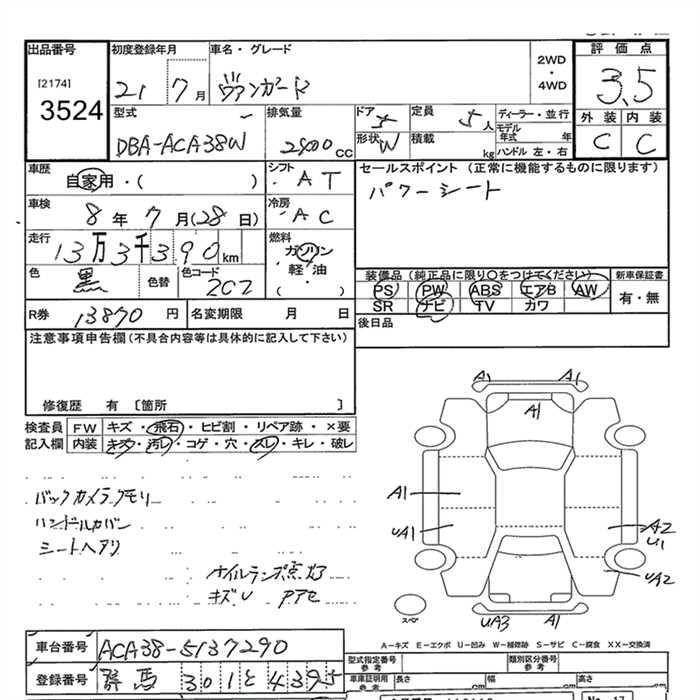 出品番号 初度登録年月 車名・グレード 2WD・4WD 評価点
[2174]
3524 21 7月 ヴァンガード 3.5
型式 DBA-ACA38W 排気量 2400CC
ドア 5 定員 5人 ディーラー・並行 外装 内装
形状 W 積載 kg モデル年式 年 C C
ハンドル 左・右
車歴 自家用・( ) シフト AT セールスポイント (正常に機能するものに限ります)
パワーシート
車検 8年 7月(28日) 冷房 AC
走行 13万3千390km 燃料 ガソリン
軽・油
( )
色 黒 色替 色コード 202
装備品 (純正品に限り○をつけてください) 新車保証書
PS PW ABS エアB AW 有・無
SR ナビ TV カワ
R券 13870円 名変期限 月 日 後日品
注意事項申告欄(不具合内容等は具体的に記入して下さい)
修復歴 有 〔箇所 〕
検査員 FW キズ・飛石・ヒビ割・リペア跡・×要
記入欄 内装 キズ・汚レ・コゲ・穴・スレ・キレ・破レ
A1 A1
A1
A1
UA1 A2
U1
UA2
スペア UA3 A1
バックカメラクモリ
ハンドルカバー
シートヘタリ
オイルランプ点灯
キズU
A-キズ E-エクボ U-凹み W-補修跡 S-サビ C-腐食 XX-交換済
車台番号 ACA38-5137290
登録番号 群馬 301 と 4395
型式指定番号 参考 類別区分番号 参考
車庫証明用 参考 長さ cm 幅 cm 高さ cm
No.17